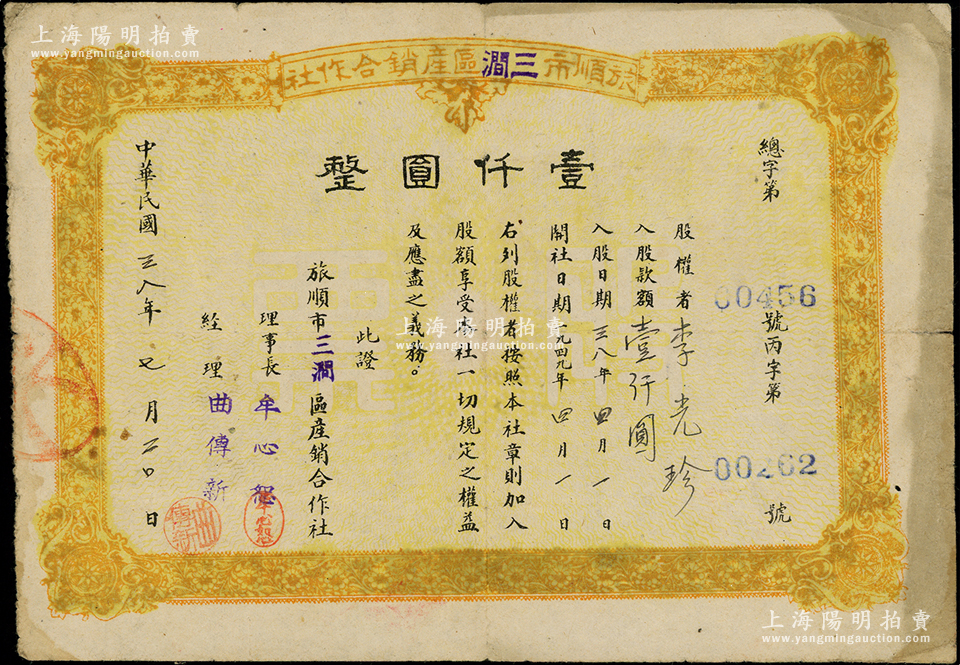 上海陽明拍賣
www.yangmingauction.com
旅順市三澗區產銷合作社
壹仟圓整
總字第00456號丙字第00262號
股權者李光珍
入股款額壹仟圓
入股日期三八年四月一日
開社日期一九四九年四月一日
右列股權者按照本社章則加入
股額享受本社一切規定之權益
及應盡之義務。
此證
旅順市三澗區產銷合作社
理事長牟心恕
経理曲傳新
中華民國三八年七月二〇日
牟心恕
曲傳新
上海陽明拍賣
www.yangmingauction.com
上海陽明拍賣
www.yangmingauction.com